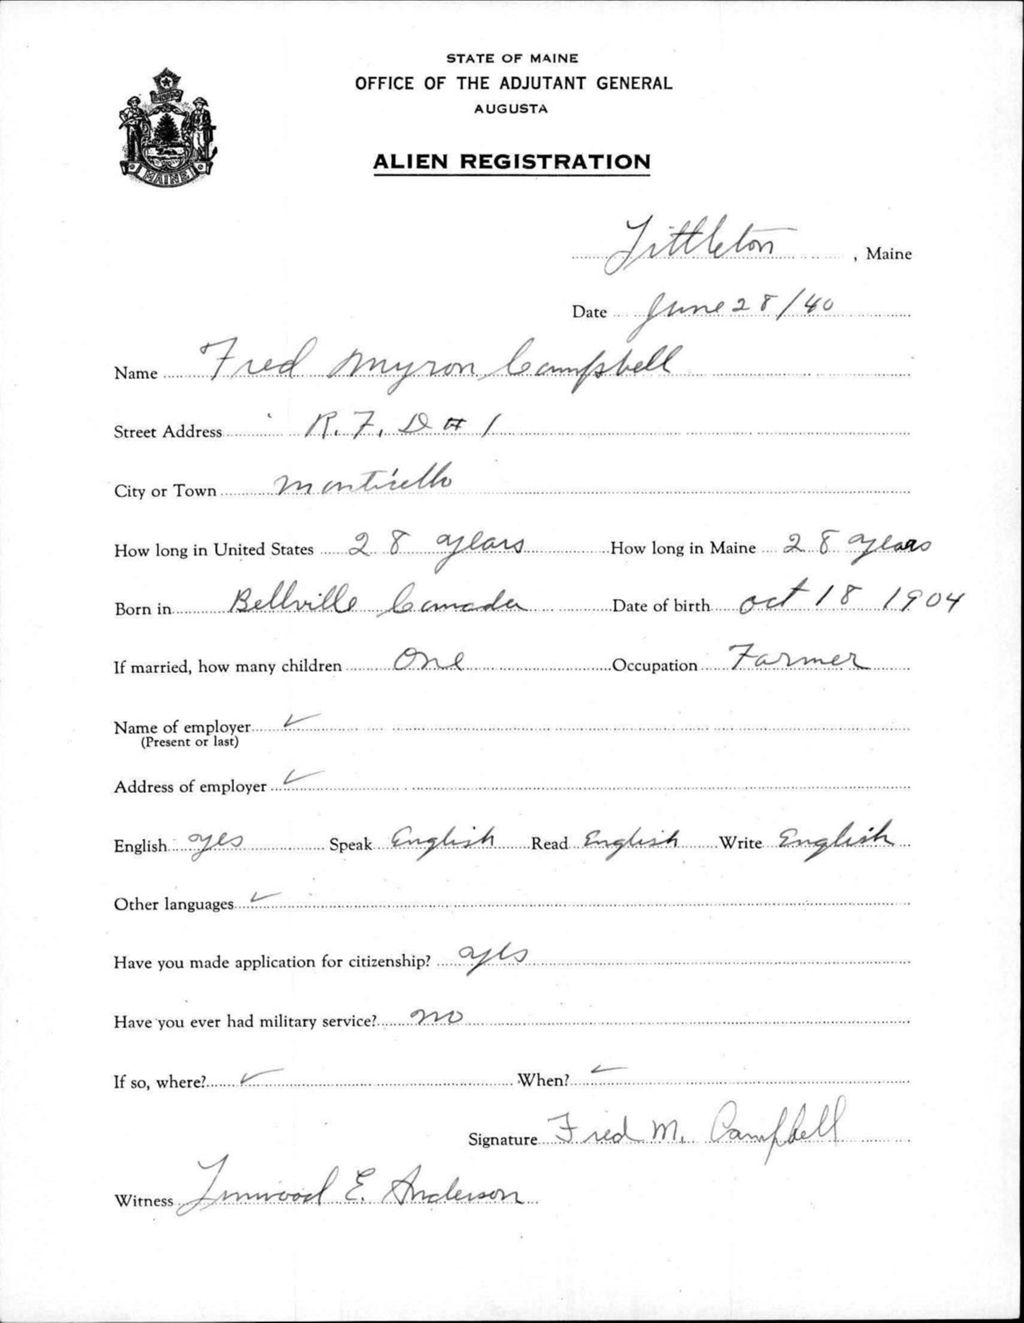 STATE OF MAINE
OFFICE OF THE ADJUTANT GENERAL
AUGUSTA
ALIEN REGISTRATION
MAINE
Littleton, Maine
Date June 28/40
Name Fred Myron Campbell
Street Address R. F. D # 1
City or Town Monticello
How long in United States 28 years How long in Maine 28 years
Born in Bellville Canada Date of birth Oct 18 1904
If married, how many children One Occupation Farmer
Name of employer ✓
(Present or last)
Address of employer ✓
English yes Speak English Read English Write English
Other languages ✓
Have you made application for citizenship? yes
Have you ever had military service? no
If so, where? ✓ When? ✓
Signature Fred M. Campbell
Witness Linwood E. Anderson